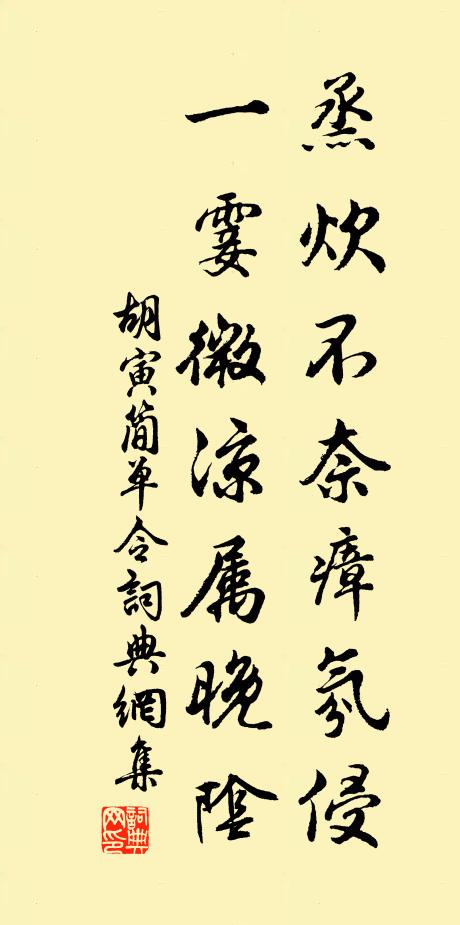 烝炊不奈瘴氛侵
一霎微涼属晚陰
胡寅簡单令詞典網集
詞典
网印